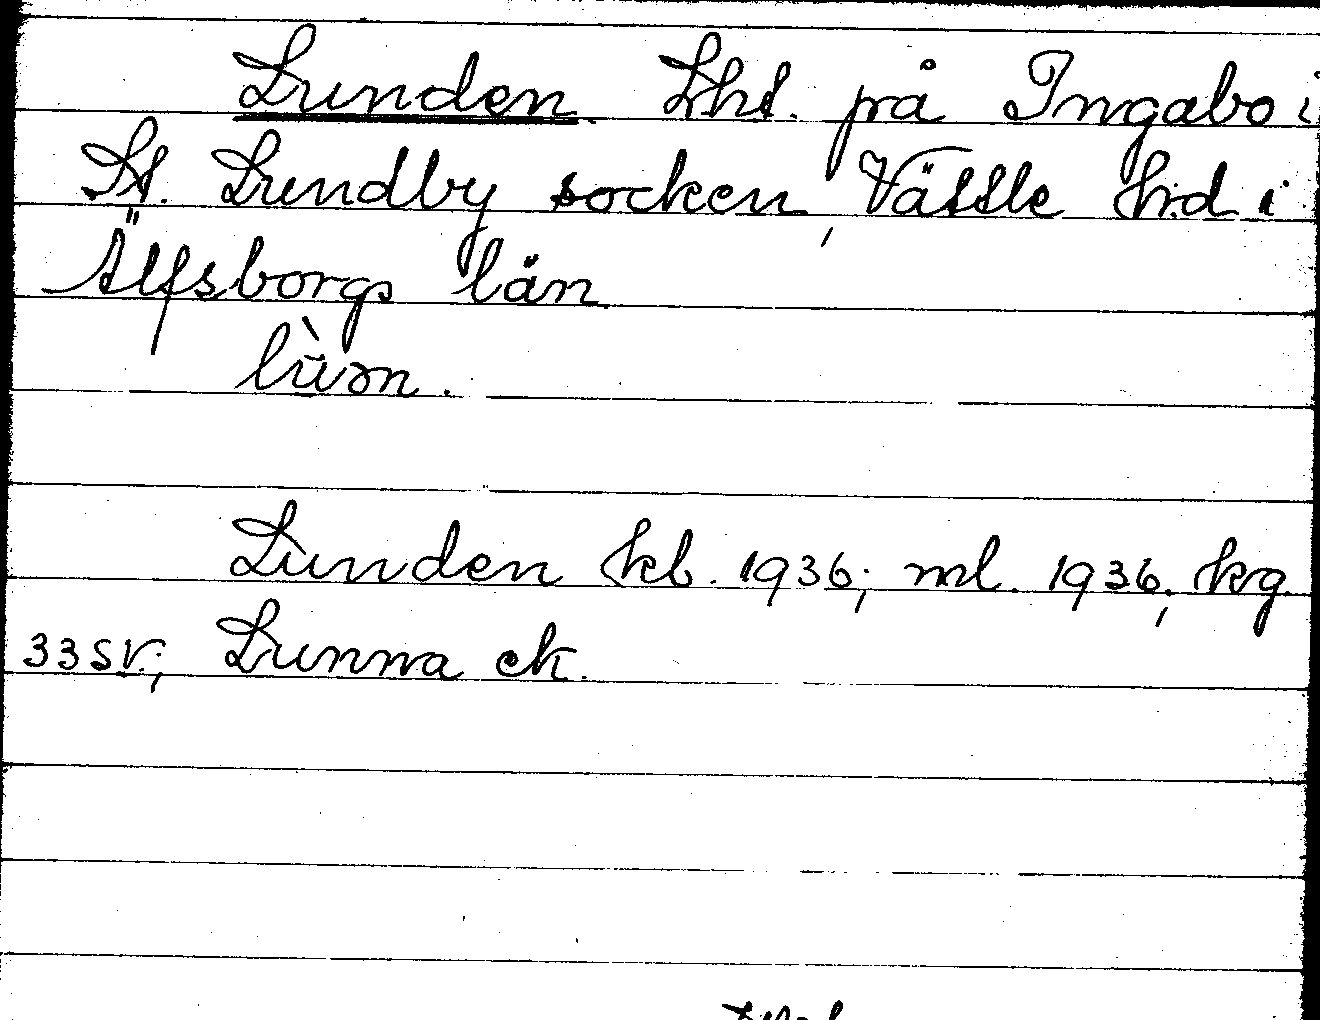 Lunden. Lht. på Ingabo i
St. Lundby socken, Vättle hd i
Älfsborgs län
lùn.
Lunden kb. 1936; ml. 1936; kg.
33 SV.; Lunna ek.